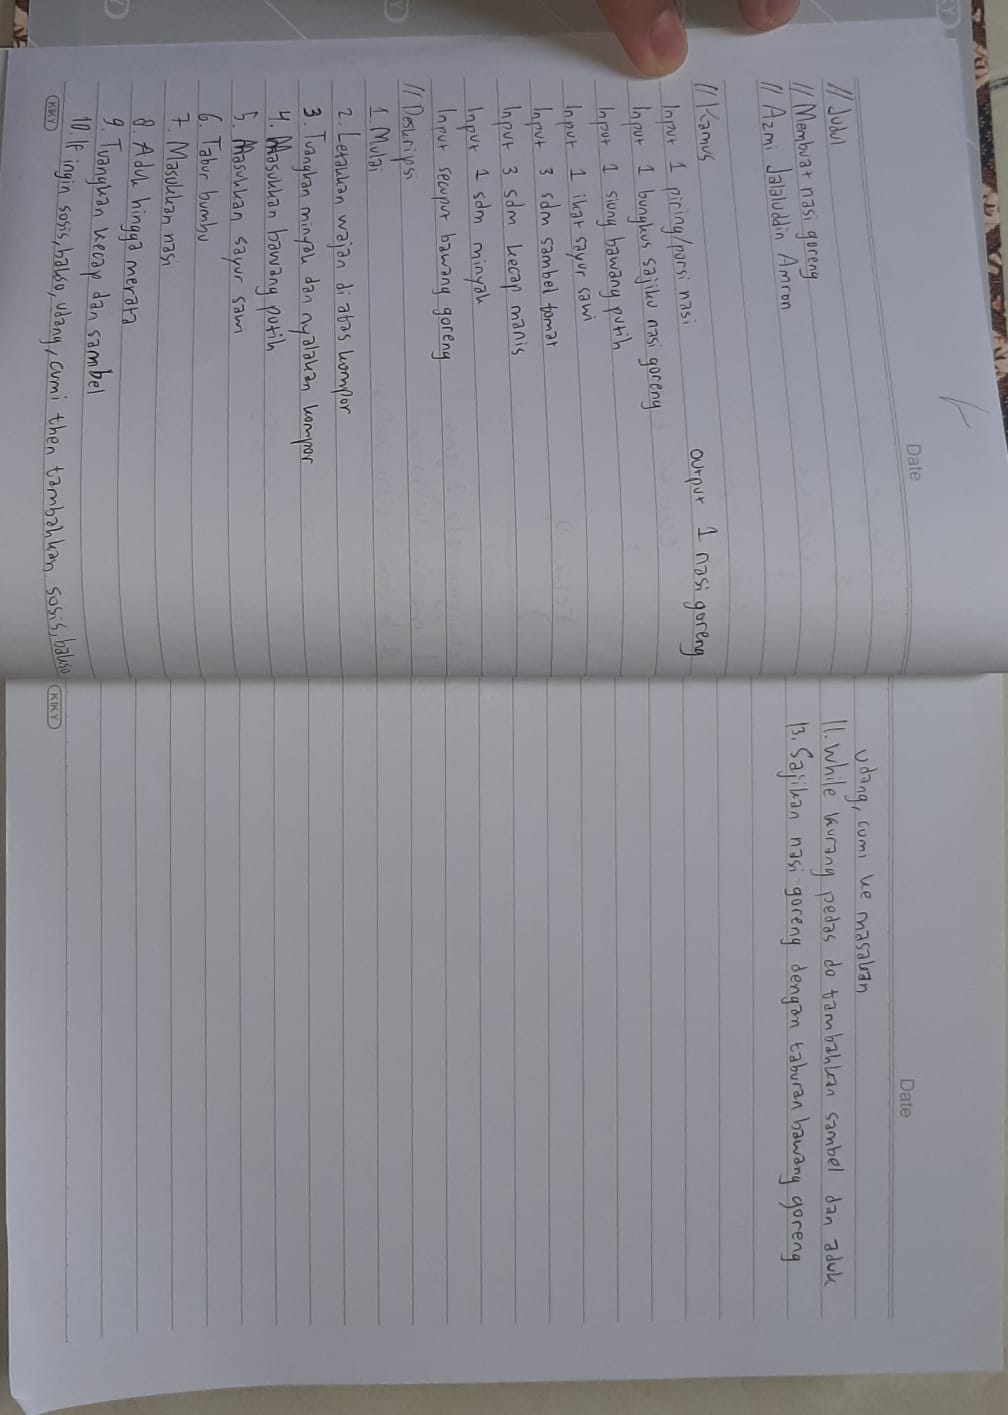 Date
// Judul
// Membuat nasi goreng
// Azmi Jalaluddin Amron
// Kamus
Input 1 piring/porsi nasi
Output 1 nasi goreng
Input 1 bungkus sajiku nasi goreng
Input 1 siung bawang putih
Input 1 ikat sayur sawi
Input 3 sdm sambel tomat
Input 3 sdm kecap manis
Input 1 sdm minyak
Input secuput bawang goreng
// Deskripsi
1. Mulai
2. Letakkan wajan di atas kompor
3. Tuangkan minyak dan nyalakan kompor
4. Masukkan bawang putih
5. Masukkan sayur sawi
6. Tabur bumbu
7. Masukkan nasi
8. Aduk hingga merata
9. Tuangkan kecap dan sambel
10. If ingin sosis, bakso, udang, cumi then tambahkan sosis, bakso
KIKY
Date
udang, cumi ke masakan
11. While kurang pedas do tambahkan sambel dan aduk
13. Sajikan nasi goreng dengan taburan bawang goreng
KIKY